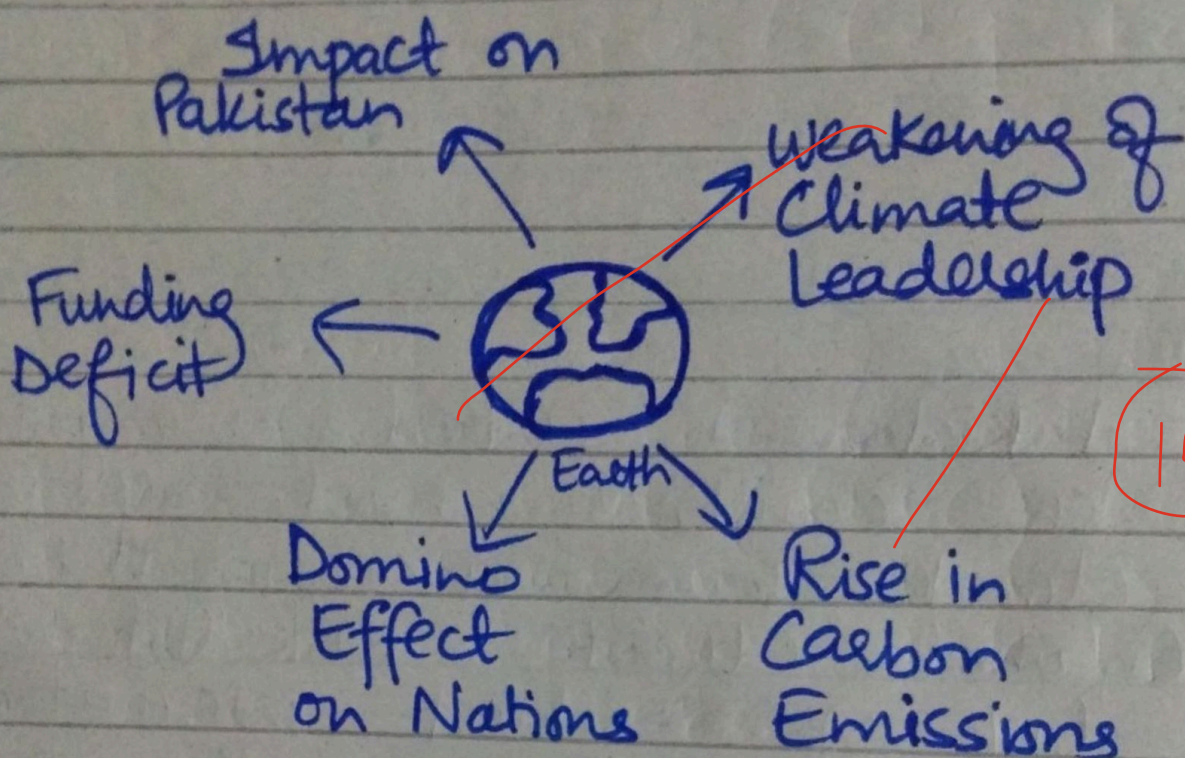 Impact on
Pakistan
Weakening of
Climate
Leadership
Funding
Deficit
Earth
Domino
Effect
on Nations
Rise in
Carbon
Emissions